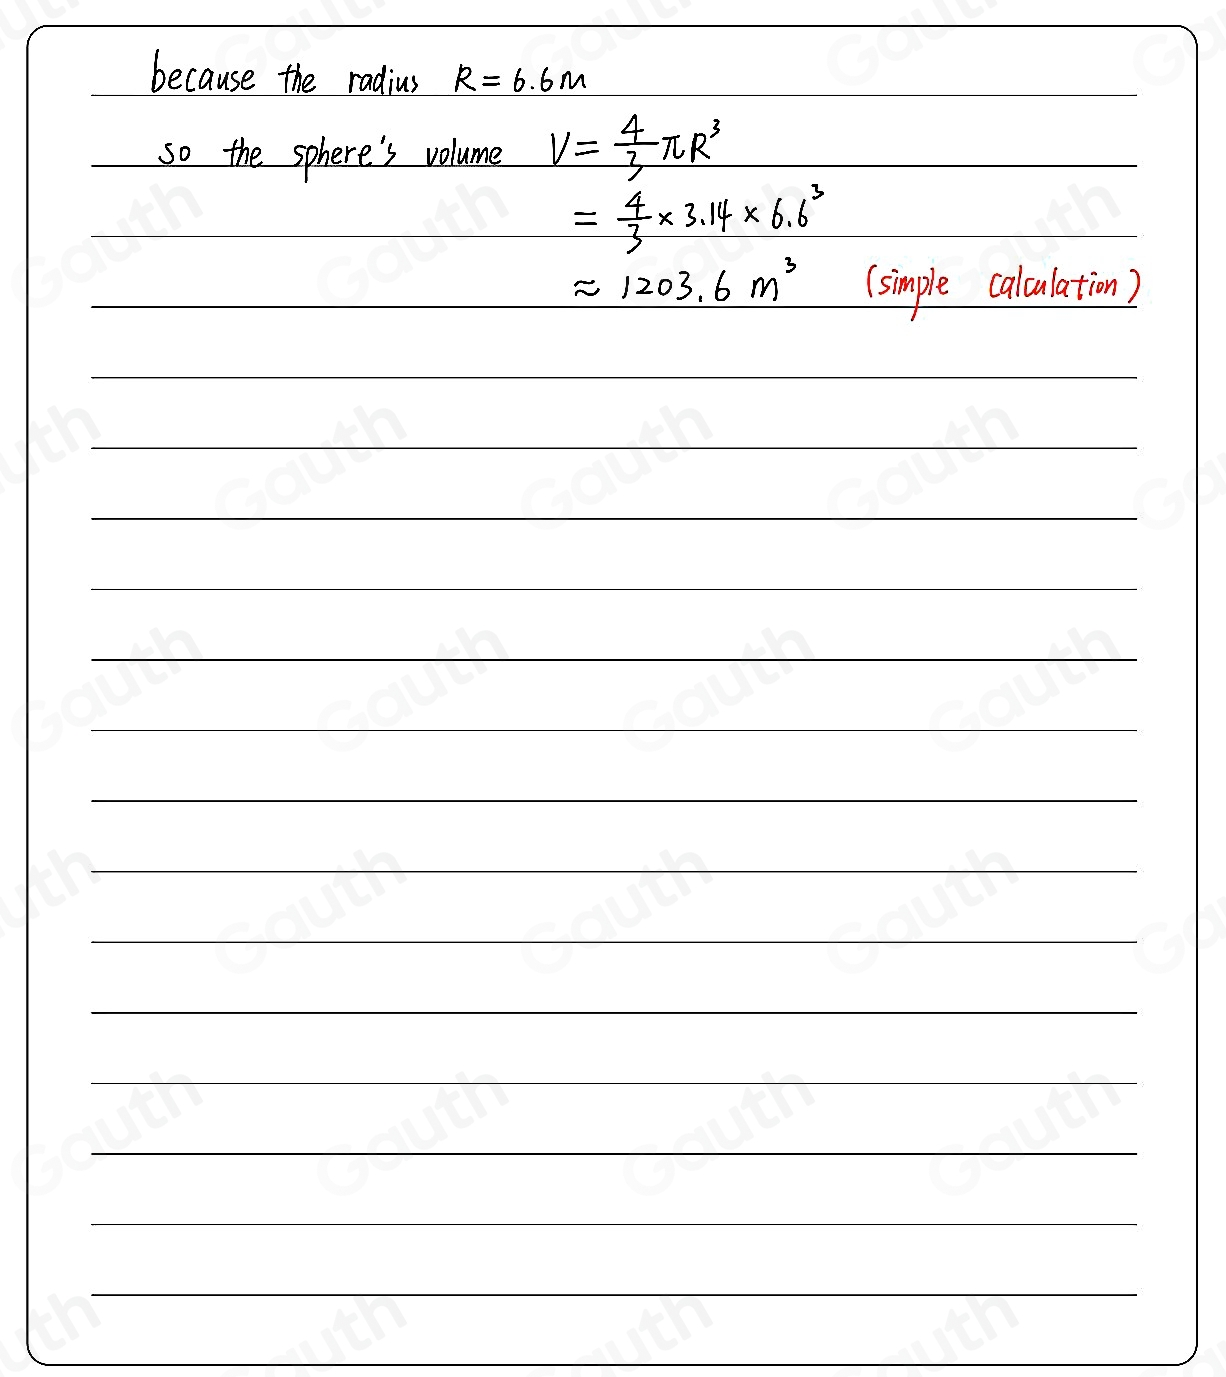 because the radius R = 6.6m
so the sphere's volume V = 4/3 πR³
= 4/3 × 3.14 × 6.6³
≈ 1203.6 m³ (simple calculation)